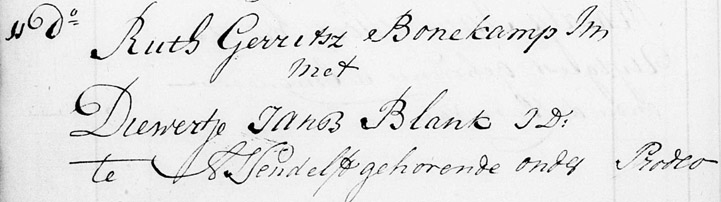 11 do Ruth Gerritsz Bonekamp Jm
met
Diewertje Janß Blank JD:
te Assendelft gehorende onder Prodeo